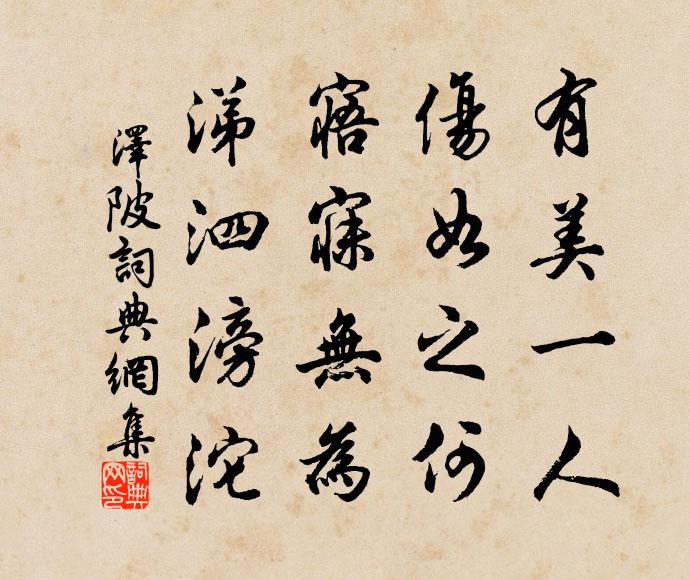 有美一人
傷如之何
寤寐無為
涕泗滂沱
澤陂詞典網集
詞典网印